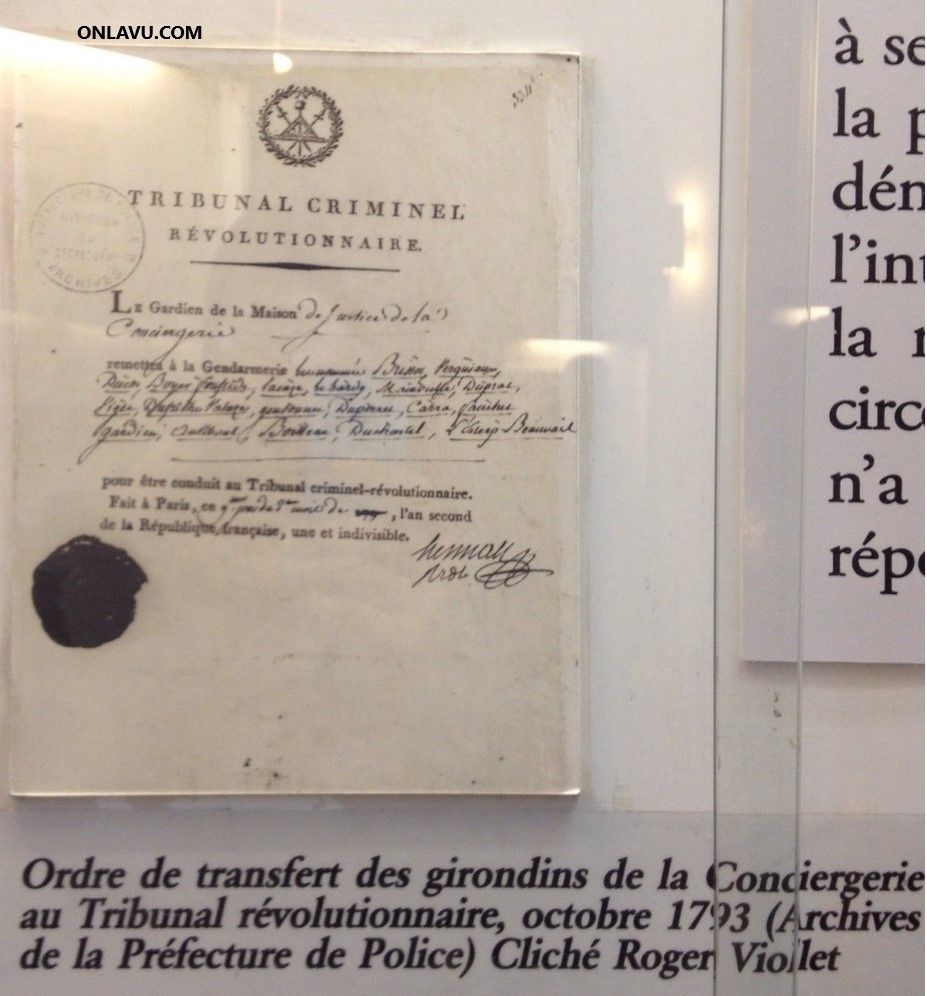 ONLAVU.COM
TRIBUNAL CRIMINEL
RÉVOLUTIONNAIRE.
LE Gardien de la Maison de Justice de la
Conciergerie
remettra à la Gendarmerie les nommés Brissot, Vergniaux,
Ducos, Boyer fonfrède, lacaze, lehardy, Mainvielle, Duprat,
Vigée, Valazé, gensonné, Duperret, Carra, fauchet
gardien, Boileau, Duchastel, Beauvais
pour être conduit au Tribunal criminel-révolutionnaire.
Fait à Paris, ce du mois de , l'an second
de la République française, une et indivisible.
herman
ARCHIVES
à se
la p
dén
l'int
la
circo
n'a
répo
Ordre de transfert des girondins de la Conciergerie
au Tribunal révolutionnaire, octobre 1793 (Archives
de la Préfecture de Police) Cliché Roger Viollet